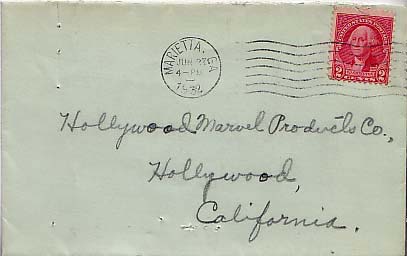 MARIETTA, GA.
JUN 27
4-PM
1932
UNITED STATES POSTAGE
2 2
Hollywood Marvel Products Co.,
Hollywood,
California.